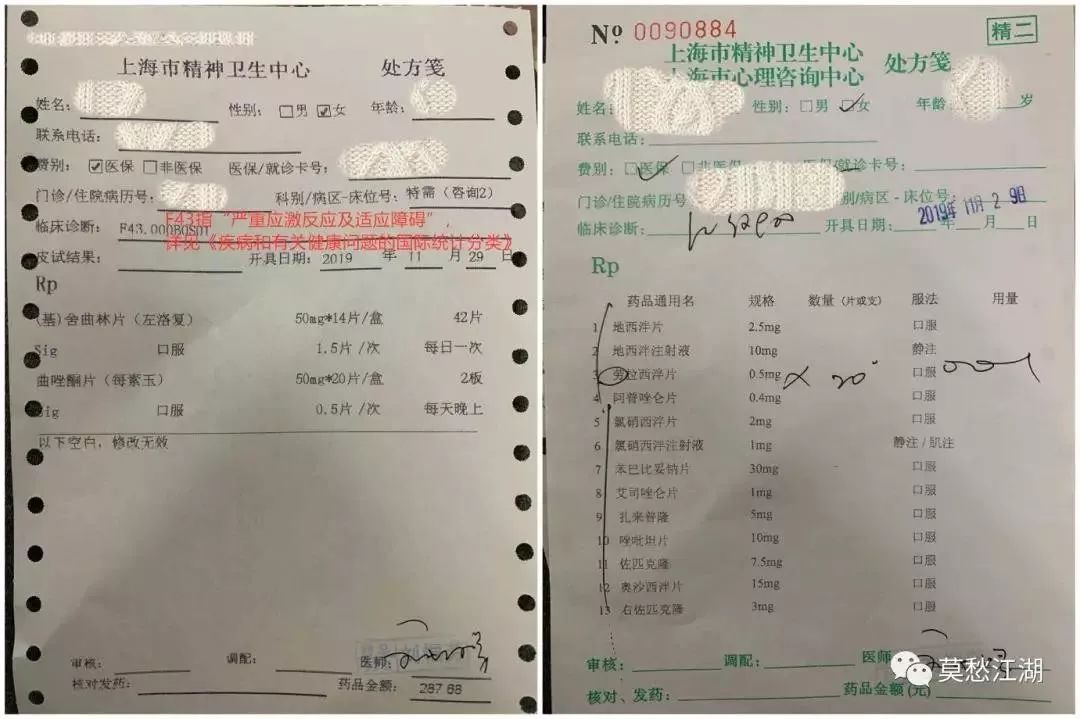 上海市精神卫生中心 处方笺
姓名: 性别: □男 ☑女 年龄:
联系电话:
费别: ☑医保 □非医保 医保/就诊卡号:
门诊/住院病历号: 科别/病区-床位号: 特需(咨询2)
F43指“严重应激反应及适应障碍”,
临床诊断:
详见《疾病和有关健康问题的国际统计分类》
皮试结果: 开具日期: 2019 年 11 月 29 日
Rp
(基)舍曲林片(左洛复) 50mg*14片/盒 42片
Sig 口服 1.5片/次 每日一次
曲唑酮片(每素玉) 50mg*20片/盒 2板
Sig 口服 0.5片/次 每天晚上
以下空白,修改无效
审核: 调配: 医师:
核对发药: 药品金额: 287.68
Nº 0090884 精二
上海市精神卫生中心
上海市心理咨询中心 处方笺
姓名: 性别: □男 ☑女 年龄: 岁
联系电话:
费别: ☑医保 □非医保 医保/就诊卡号:
门诊/住院病历号: 科别/病区-床位号:
临床诊断: 开具日期: 2019年11月29日 年 月 日
Rp
药品通用名 规格 数量(片或支) 服法 用量
1 地西泮片 2.5mg 口服
2 地西泮注射液 10mg 静注
3 劳拉西泮片 0.5mg × 20 口服
4 阿普唑仑片 0.4mg 口服
5 氯硝西泮片 2mg 口服
6 氯硝西泮注射液 1mg 静注/肌注
7 苯巴比妥钠片 30mg 口服
8 艾司唑仑片 1mg 口服
9 扎来普隆 5mg 口服
10 唑吡坦片 10mg 口服
11 佐匹克隆 7.5mg 口服
12 奥沙西泮片 15mg 口服
13 右佐匹克隆 3mg 口服
审核: 调配: 医师
核对、发药: 药品金额(元)
莫愁江湖